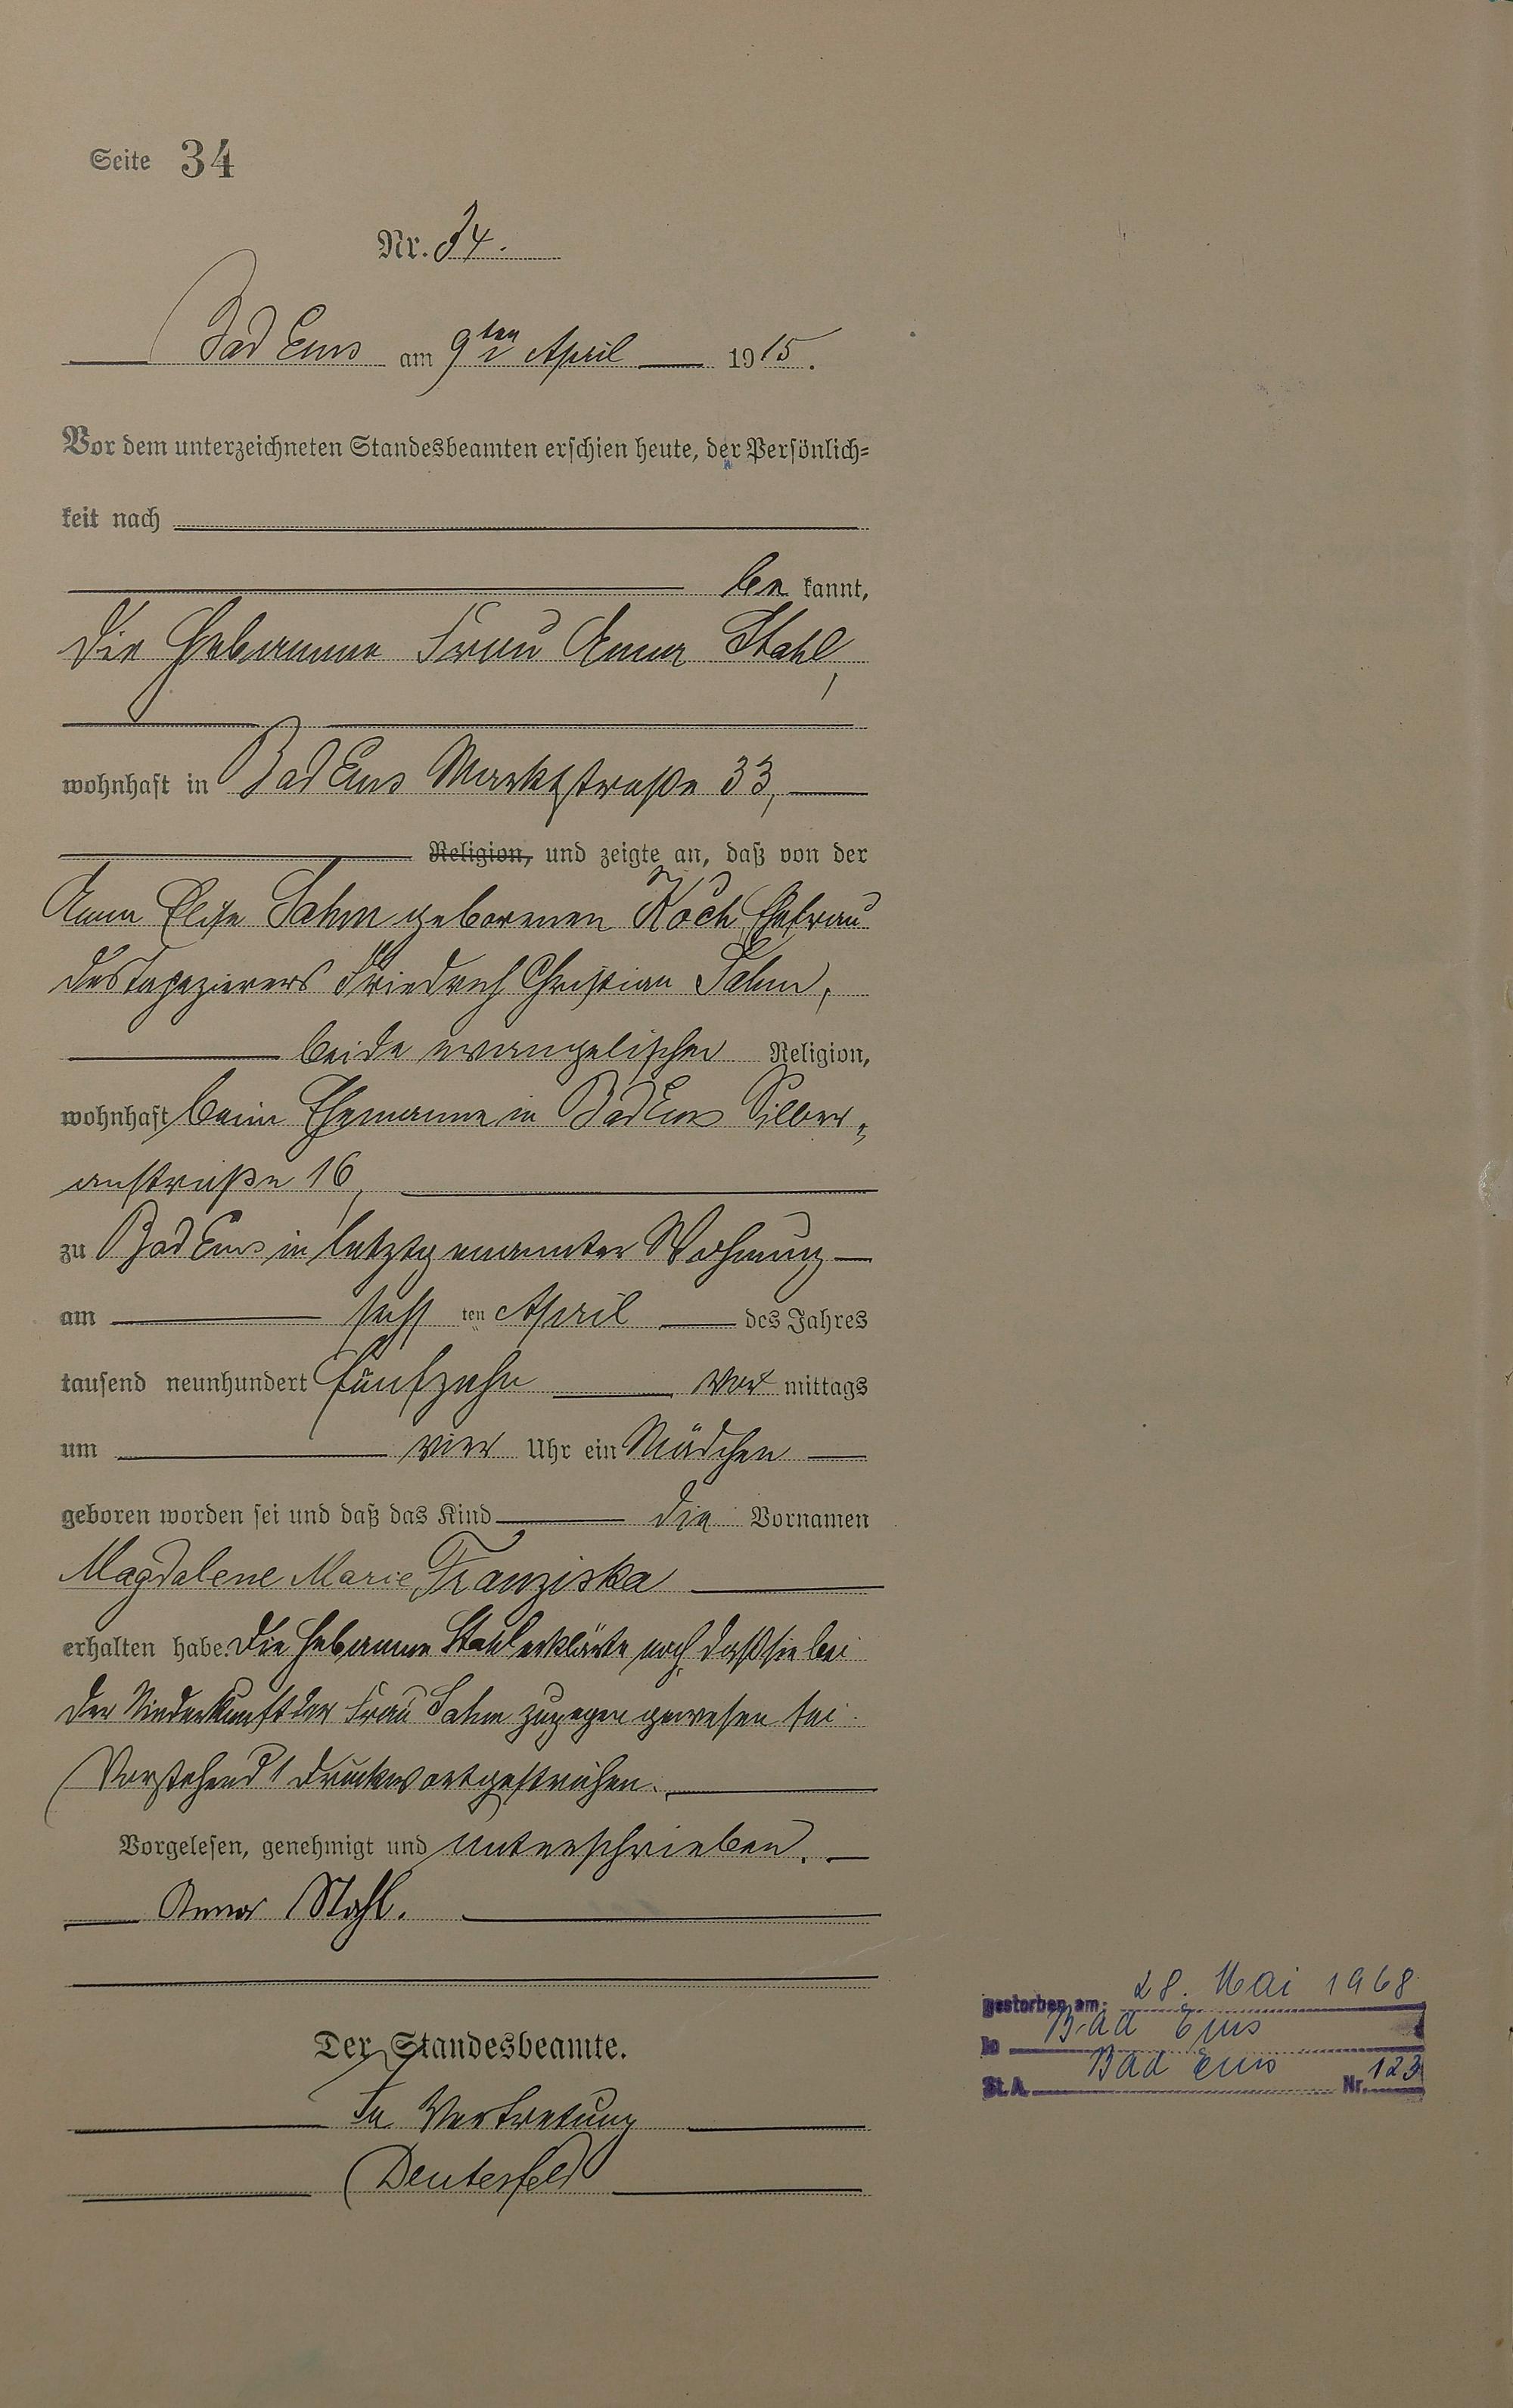 Seite 34
Nr. 34.
Bad Ems am 9ten April 1915.
Vor dem unterzeichneten Standesbeamten erschien heute, der Persönlich=
keit nach
be kannt,
die Hebamme Frau Anna Stahl,
wohnhaft in Bad Ems Marktstraße 33,
Religion, und zeigte an, daß von der
Anna Elise Sahm geborenen Koch, Ehefrau
des Tapezierers Friedrich Christian Sahm,
beide evangelischer Religion,
wohnhaft beim Ehemanne in Bad Ems Silber=
austraße 16,
zu Bad Ems in letztgenannter Wohnung
am sechsten April des Jahres
tausend neunhundert fünfzehn vor mittags
um vier Uhr ein Mädchen
geboren worden sei und daß das Kind die Vornamen
Magdalene Marie Franziska
erhalten habe. Die Hebamme Stahl erklärte noch, daß sie bei
der Niederkunft der Frau Sahm zugegen gewesen sei.
Vorstehend 1 Druckwort gestrichen.
Vorgelesen, genehmigt und unterschrieben.
Anna Stahl.
Der Standesbeamte.
In Vertretung
Deutesfeld
gestorben am: 28. Mai 1968
in Bad Ems
St. A. Bad Ems Nr. 123